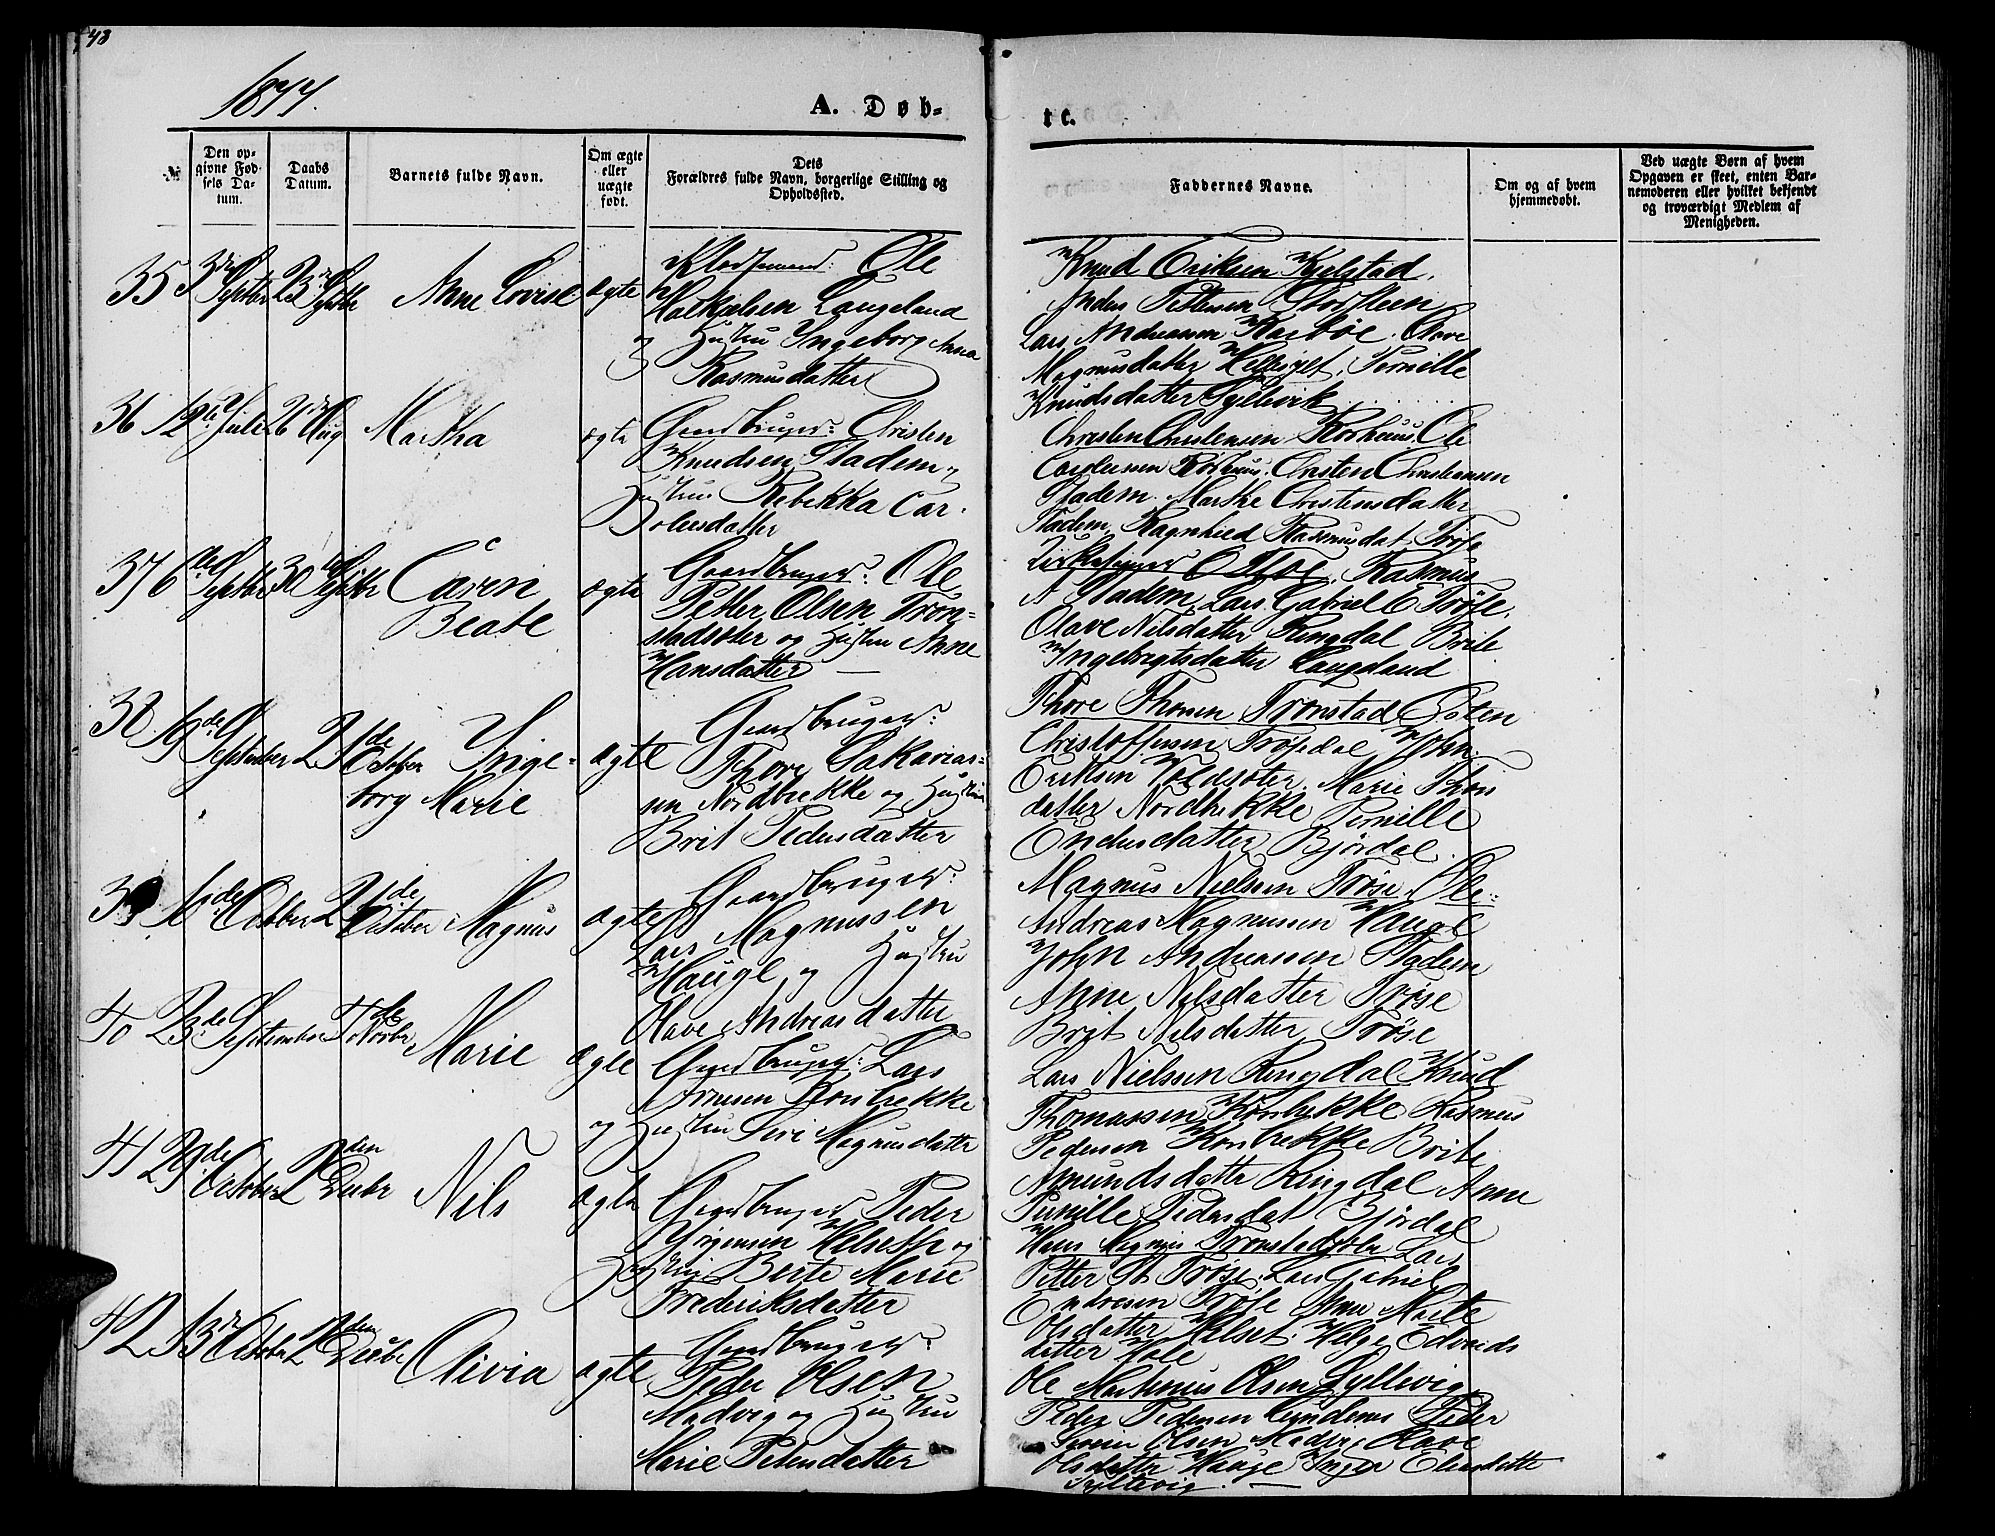 48
1877.
A. Døb-
te.
№
Den op-
givne Fød-
sels Da-
tum.
Daabs
Datum.
Barnets fulde Navn.
Om ægte
eller
uægte
født.
Dets
Forældres fulde Navn, borgerlige Stilling og
Opholdssted.
Faddernes Navne.
Om og af hvem
hjemmedøbt.
Ved uægte Børn af hvem
Opgaven er skeet, enten Bar-
nemoderen eller hvilket bekjendt
og troværdigt Medlem af
Menigheden.
35 3die Septbr 23die Septbr Anne Lovise ægte
Ole
Langeland
og Hustru Ingeborg Anna
Rasmusdatter
Knud Eriksen Kjelstad,
Anders Pettersen Storsteen
Lars Andreassen Olave
Magnusdatter Pernille
Knudsdatter Syltevik
36 12te Juli 26de Aug Martha ægte
Gaardbruger: Christen
Knudsen Stadem og
Hustru Rebekka Car-
olusdatter
Christen Christensen Rørhuus. Ole
Carolusen Rørhuus. Christen Christensen
Stadem. Marthe Christensdatter
Stadem. Ragnhild Rasmusdat. Trøse
37 6te Septbr 30te Septbr Caren
Beate ægte
Gaardbruger: Ole
Petter Olsen Tron-
stadsæter og Hustru Anne
Hansdatter
Kirkesanger Rasmus
A Stadem, Lars Gabriel E Trøse.
Olave Nilsdatter Ringdal Brite
Ingebrigtsdatter Langeland
38 19de September 21de October Inge-
borg Marie ægte
Gaardbruger:
Thore Sakarias-
sen Nordbrekke og Hustru
Brit Pedersdatter
Thore Thoresen Tronstad Østen
Christoffersen Trøsedal John
Eriksen Voldsæter. Marie Thores
datter Nordbrekke Pernille
Endresdatter Bjørdal.
39 16de October 21de October Magnus ægte
Gaardbruger:
Lars Magnussen
Hauge og Hustru
Olave Andreasdatter
Magnus Nielssen Trøse. Ole
Andreas Magnussen Hauge
John Andreassen Stadem
Anne Nilsdatter Trøse
Brit Nilsdatter Trøse
40 23de September 4de Novbr Marie ægte
Gaardbruger: Lars
Aronesen Konbrekke
og Hustru Siri Magnusdatter
Lars Nielssen Ringdal Knud
Thomassen Konbrekke Rasmus
Pedersen Konbrekke Brite
Amundsdatter Ringdal Anne
Pernille Pedersdat Bjørdal
41 29de October 2den Decbr Nils ægte
Gaardbruger Peder
Jørgensen Helseth og
Hustru Berte Marie
Frederiksdatter
Hans Magnus Tronstadsæter Lars
Petter A Trøse. Lars Gabriel
Endresen Trøse Ane Marte
Olsdatter Helset. Helge Edvards
datter Hole
42 13de October 2den Decbr Olivia ægte
Gaardbruger:
Peder Olsen
Malvig og Hustru
Marie Petersdatter
Ole Martinus Olsen Syltevig
Peder Pedersen Peder
Severin Olsen Olave
Olsdatter Hauge Inger Elisabeth
Syltevig.